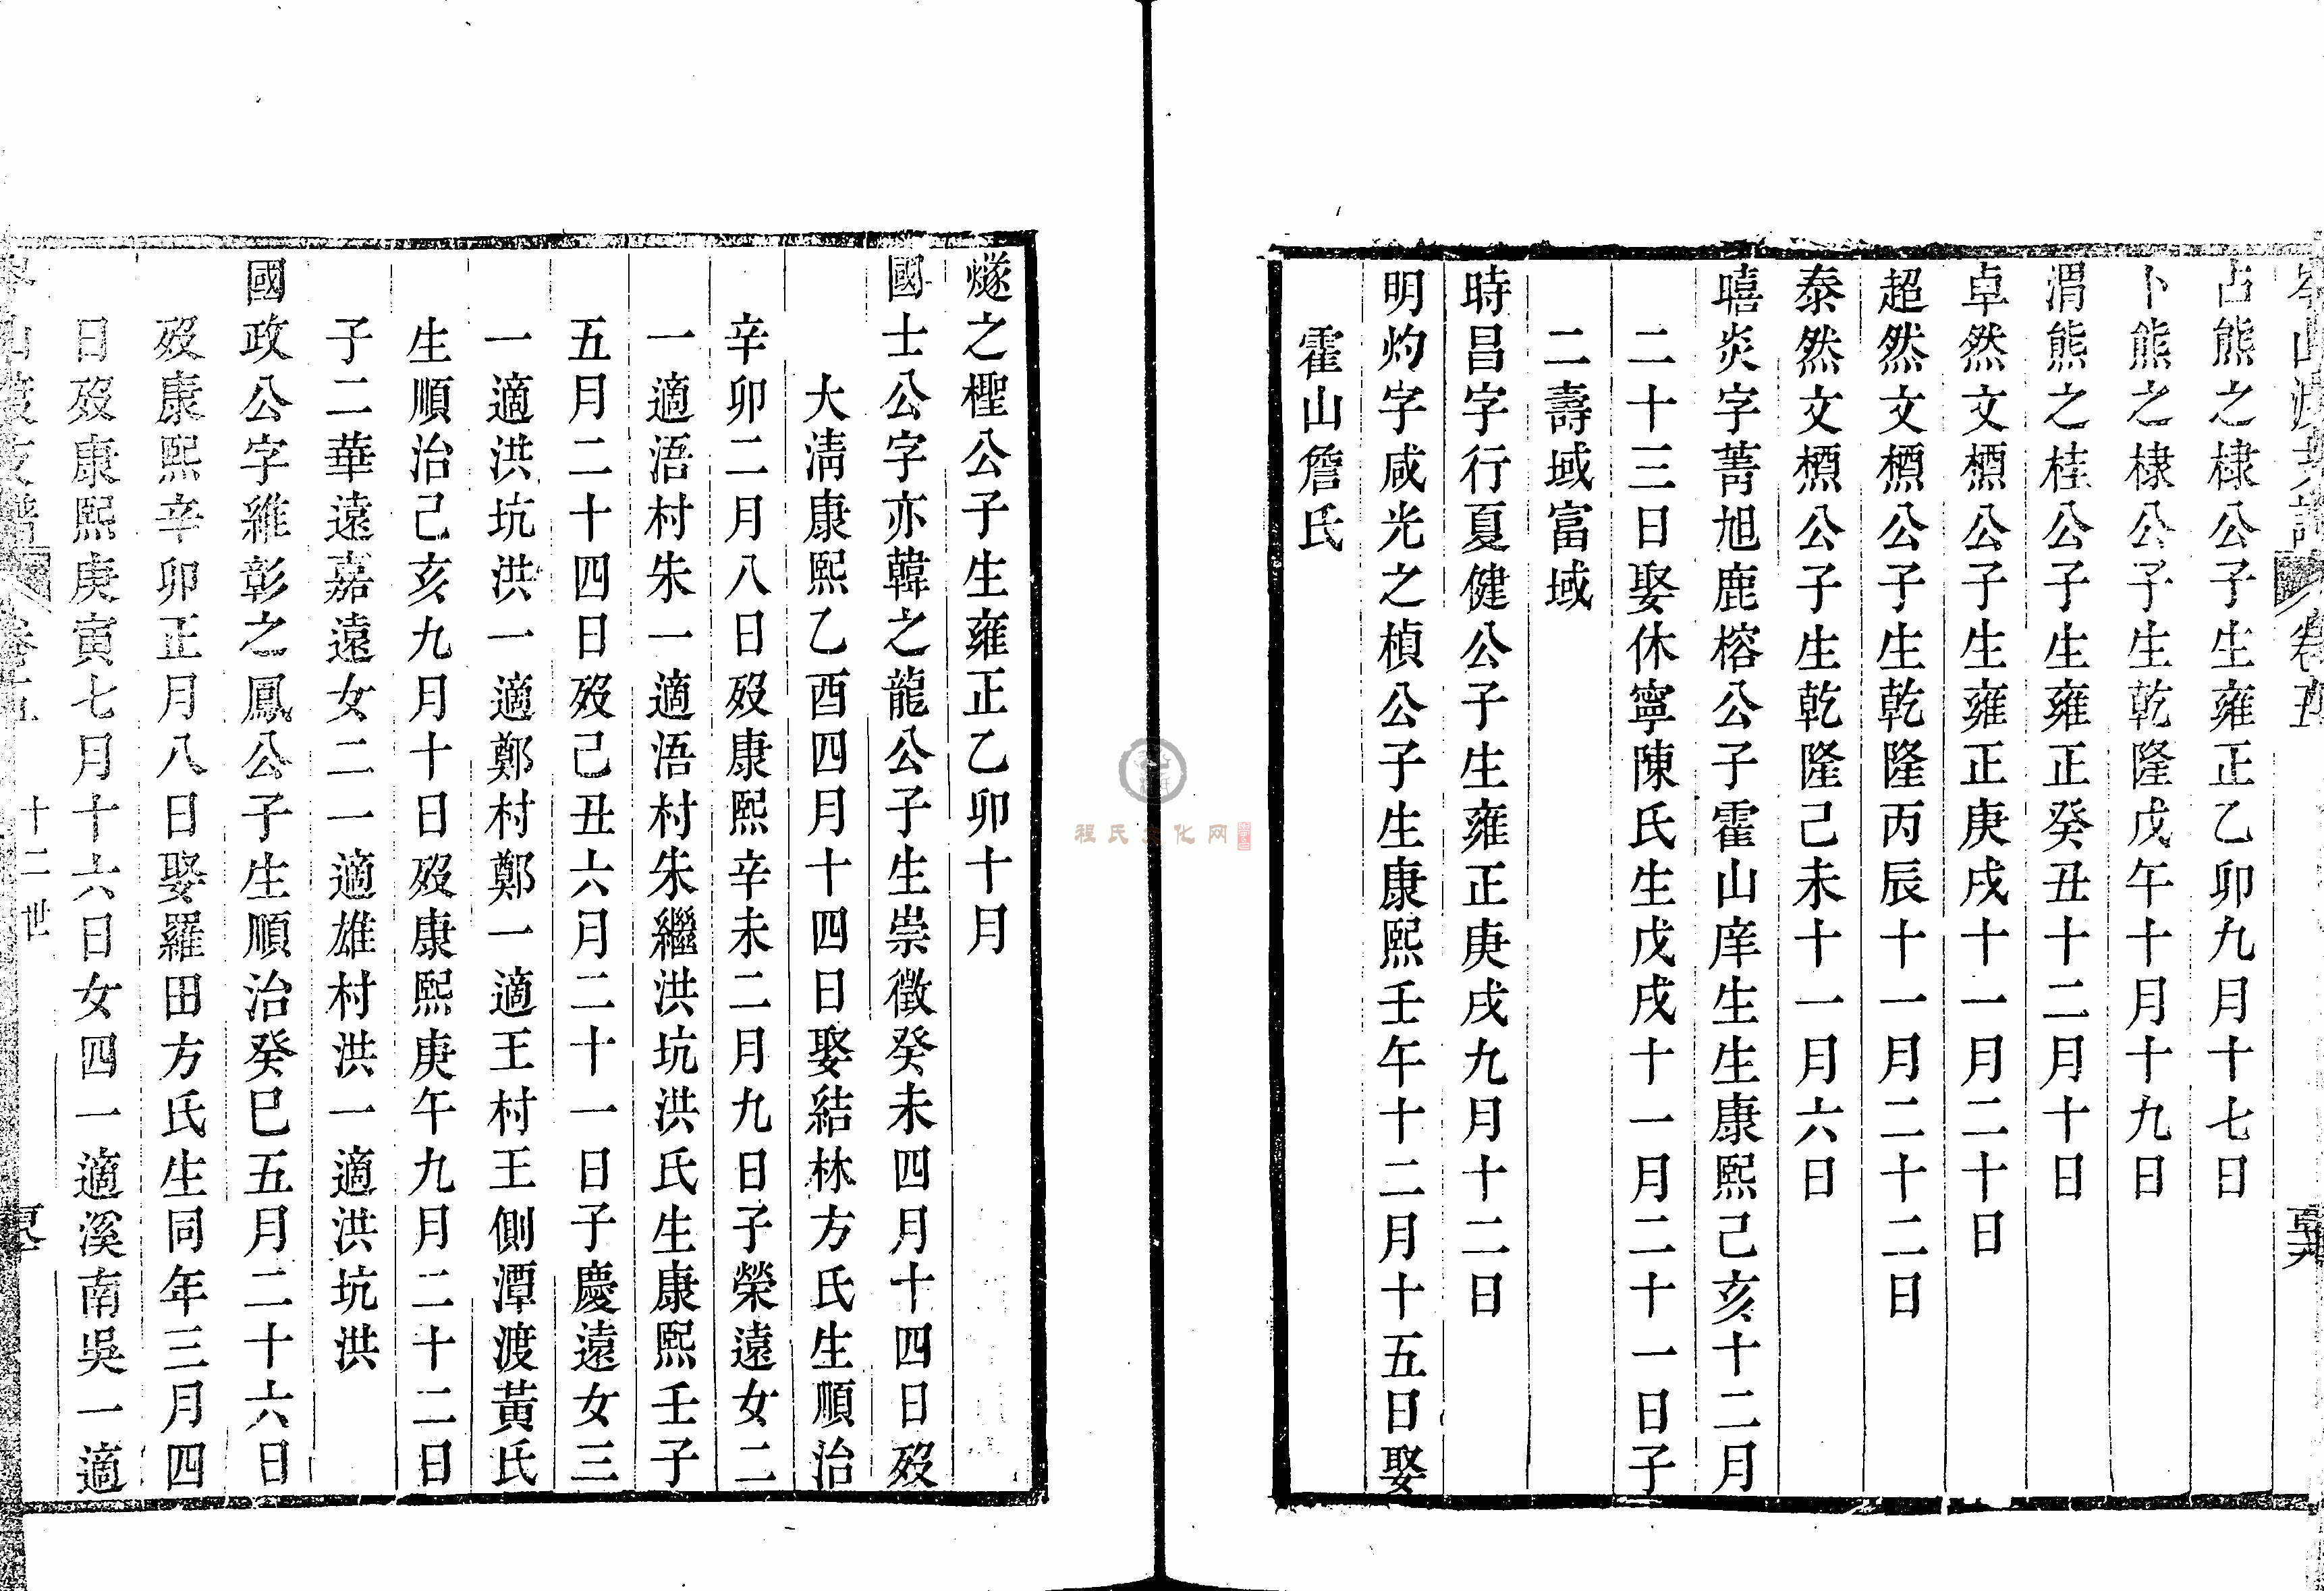 岑山渡支譜 卷五
占熊之棣公子生雍正乙卯九月十七日
卜熊之棣公子生乾隆戊午十月十九日
渭熊之桂公子生雍正癸丑十二月十日
卓然文槱公子生雍正庚戌十一月二十日
超然文槱公子生乾隆丙辰十一月二十二日
泰然文槱公子生乾隆己未十一月六日
嘻炎字菁旭鹿榕公子霍山庠生生康熙己亥十二月
二十三日娶休寧陳氏生戊戌十一月二十一日子
二壽域富域
時昌字行夏健公子生雍正庚戌九月十二日
明灼字咸光之楨公子生康熙壬午十二月十五日娶
霍山詹氏
燧之檉公子生雍正乙卯十月
國士公字亦韓之龍公子生崇徵癸未四月十四日歿
大清康熙乙酉四月十四日娶結林方氏生順治
辛卯二月八日歿康熙辛未二月九日子榮遠女二
一適浯村朱一適浯村朱繼洪坑洪氏生康熙壬子
五月二十四日歿己丑六月二十一日子慶遠女三
一適洪坑洪一適鄭村鄭一適王村王側潭渡黃氏
生順治己亥九月十日歿康熙庚午九月二十二日
子二華遠嘉遠女二一適雄村洪一適洪坑洪
國政公字維彰之鳳公子生順治癸巳五月二十六日
歿康熙辛卯正月八日娶羅田方氏生同年三月四
日歿康熙庚寅七月十六日女四一適溪南吳一適
岑山渡支譜 卷五 十二世
程氏文化网